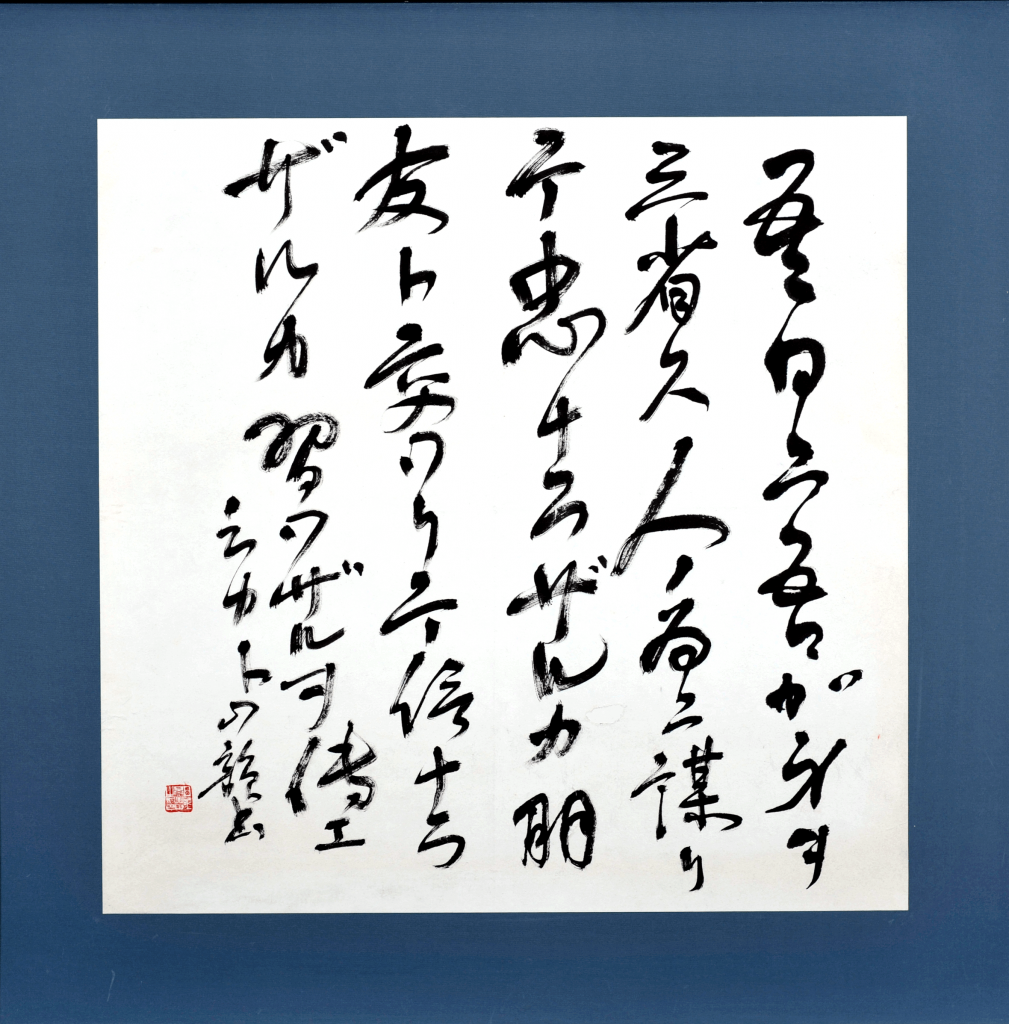 吾日ニ吾ガ身ヲ
三省ス人ノ為ニ謀リ
テ忠ナラザルカ朋
友ト交ワリテ信ナラ
ザルカ習ワザルヲ傳エ
シカト